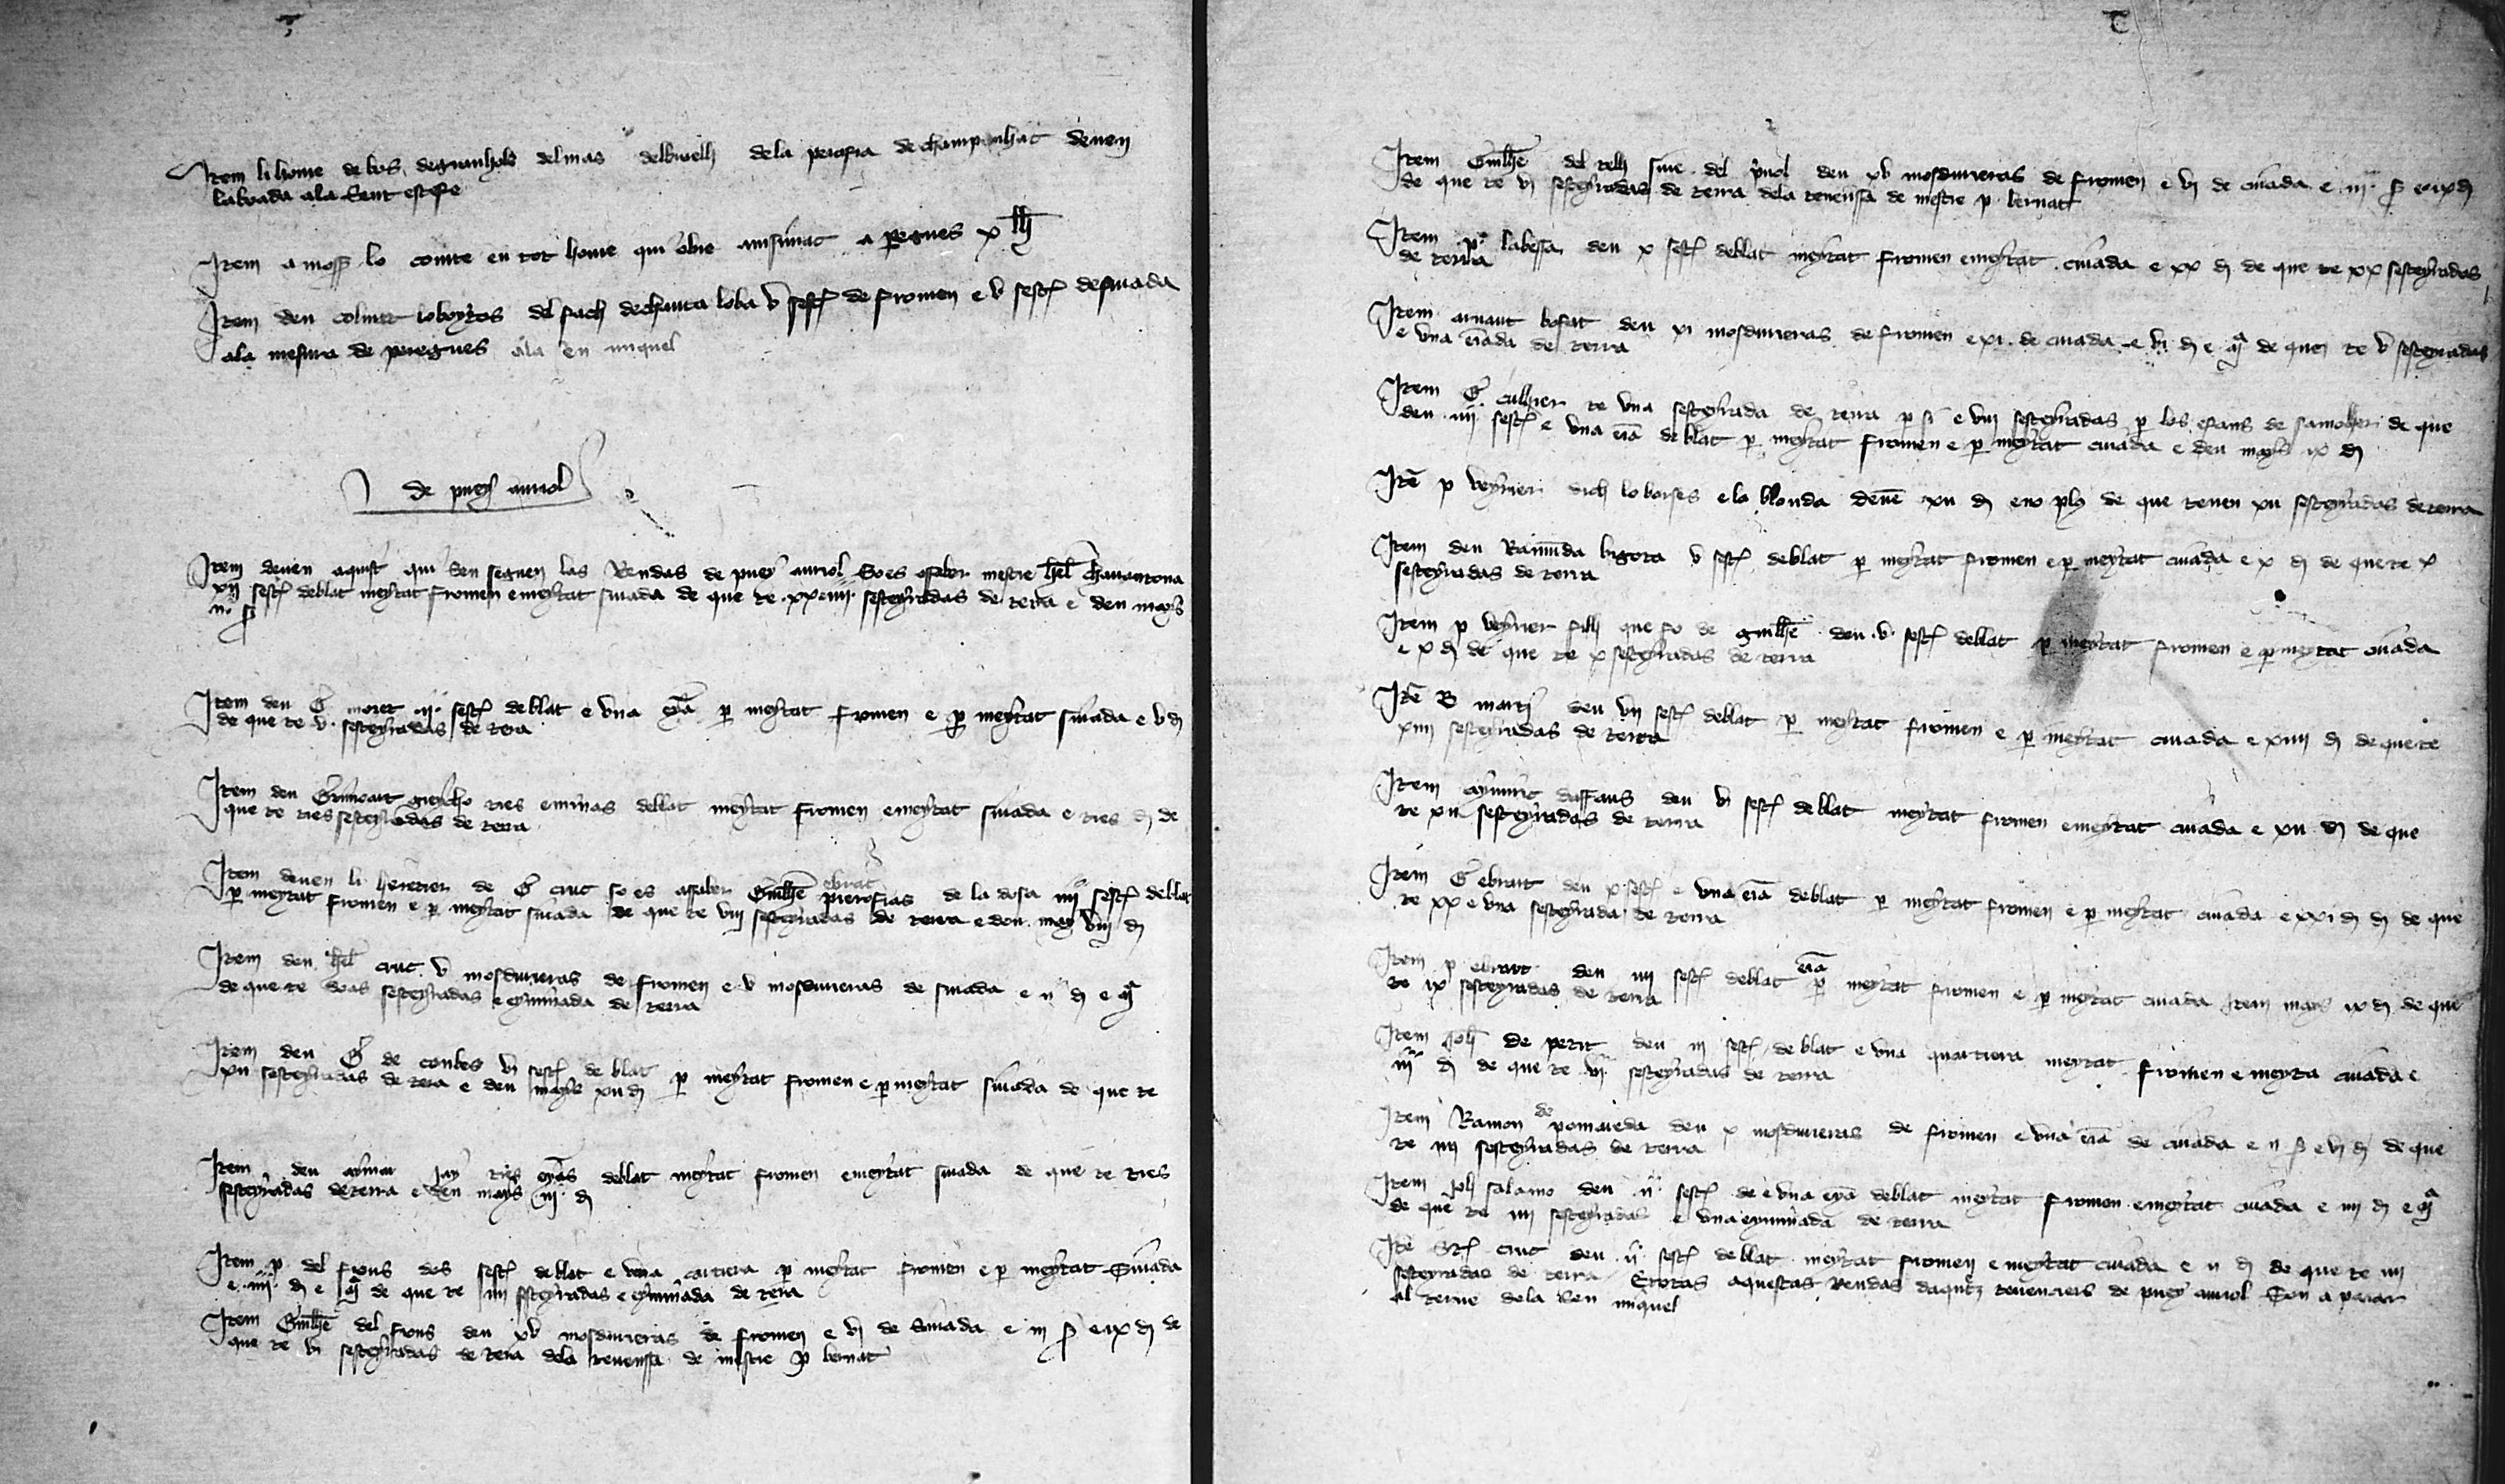 Item li home de bos degranhols del mas delbruelh de la perofia de champanhac deven
labrada a la sent estefe
Item a moss lo comte en tot home qui obre amsimat a peregues x lh
Item deu colmet loboytos del fach de chanta loba v sest de fromen e v sest de sivada
a la mesura de peregues a la sen miquel
de puey auriol
Item deven aquist qui sen seguen las Rendas de puey auriol So es assaber mestre hel chavantona
xii sest de blat meytat fromen e meytat sivada de que te xxiiii sesteyradas de terra e deu mays
ii s
Item deu G moret ii sest de blat e una eya per meytat fromen e per meytat sivada e v d
de que te v sesteyradas de tera
Item deu Grimoart greylho tres eminas de blat meytat fromen e meytat sivada e tres d de
que te tres sesteyradas de terra
Item deven li heretier de G cruc so es assaber Guilhe ebrart pierofias de la dosa iiii sest de blat
per meytat fromen e per meytat sivada de que te viii sesteyradas de terra e deu may viii d
Item deu hel cruc v mosdurieras de fromen e v mosdurieras de sivada e ii d e
de que te doas sesteyradas e eyminada de terra
Item deu G de combas vi sest de blat per meytat fromen e per meytat sivada de que te
xii sesteyradas de tera e deu mays xii d
Item deu aymar jay tres eyas de blat meytat fromen e meytat sivada de que te tres
sesteyradas de terra e deu mays iii d
Item p del frons dos sest de blat e una cartiera per meytat fromen e per meytat Sivada
e iiii d e de que te iiii sesteyradas e eyminada de terra
Item Guilhe del frons deu xv mosdurieras de fromen e vi de Sivada e iii s e ix d de
que te vi sesteyradas de tera de la tenensa de mestre p bernat
Item Guilhe del telh sive del prvol deu xv mosdurieras de fromen e vi de civada e iii s e ix d
de que te vi sesteyradas de terra de la tenenssa de mestre p bernat
Item p labessa deu x sest de blat meytat fromen e meytat civada e xx d de que te xx sesteyradas
de terra
Item arnaut bofat deu xi mosdurieras de fromen e xi de civada e vi d e de que te v sesteyradas
e una eiada de terra
Item G culhier te una sesteyrada de terra p si e viii sesteyradas p los efans de samolhier de que
deu iiii sest e una eia de blat p meytat fromen e p meytat civada e deu mays ix d
Ite p veyrier dich lo borses e la blonda deve xii d e no plus de que tenen xii sesteyradas de terra
Item deu Ramunda bigota v sest de blat per meytat fromen e per meytat civada e x d de que te x
sesteyradas de terra
Item p veyrier filh que fo de guilhe deu v sest de blat p meytat fromen e p meytat civada
e x d de que te x sesteyradas de terra
Ite B marti deu vii sest de blat p meytat fromen e p meytat civada e xiiii d de que te
xiiii sesteyradas de terra
Item aymiric daffans deu vi sest de blat meytat fromen e meytat civada e xii d de que
te xii sesteyradas de terra
Item G ebrart deu x sest e una eia de blat p meytat fromen e p meytat civada e xxi d d de que
te xx e una sesteyrada de terra
Item p ebrart deu iiii sest de blat eia p meytat fromen e p meytat civada Item mays ix d de que
te ix sesteyradas de terra
Item Joh de petit deu iii sest de blat e una quartiera meytat fromen e meyta civada e
iiii d de que te vi sesteyradas de terra
Item Ramon de pomareda deu x mosdurieras de fromen e una eia de civada e ii s e vi d de que
te iiii sesteyradas de terra
Item Joh salamo deu ii sest de e una eya de blat meytat fromen e meytat civada e iiii d e
de que te iiii sesteyradas e una eyminada de terra
Ite cruc deu ii sest de blat meytat fromen e meytat civada e ii d de que te iiii
sesteyradas de terra E totas aquestas rendas daquetz tenenciers de puey auriol Son a paiar
al terme de la sen miquel